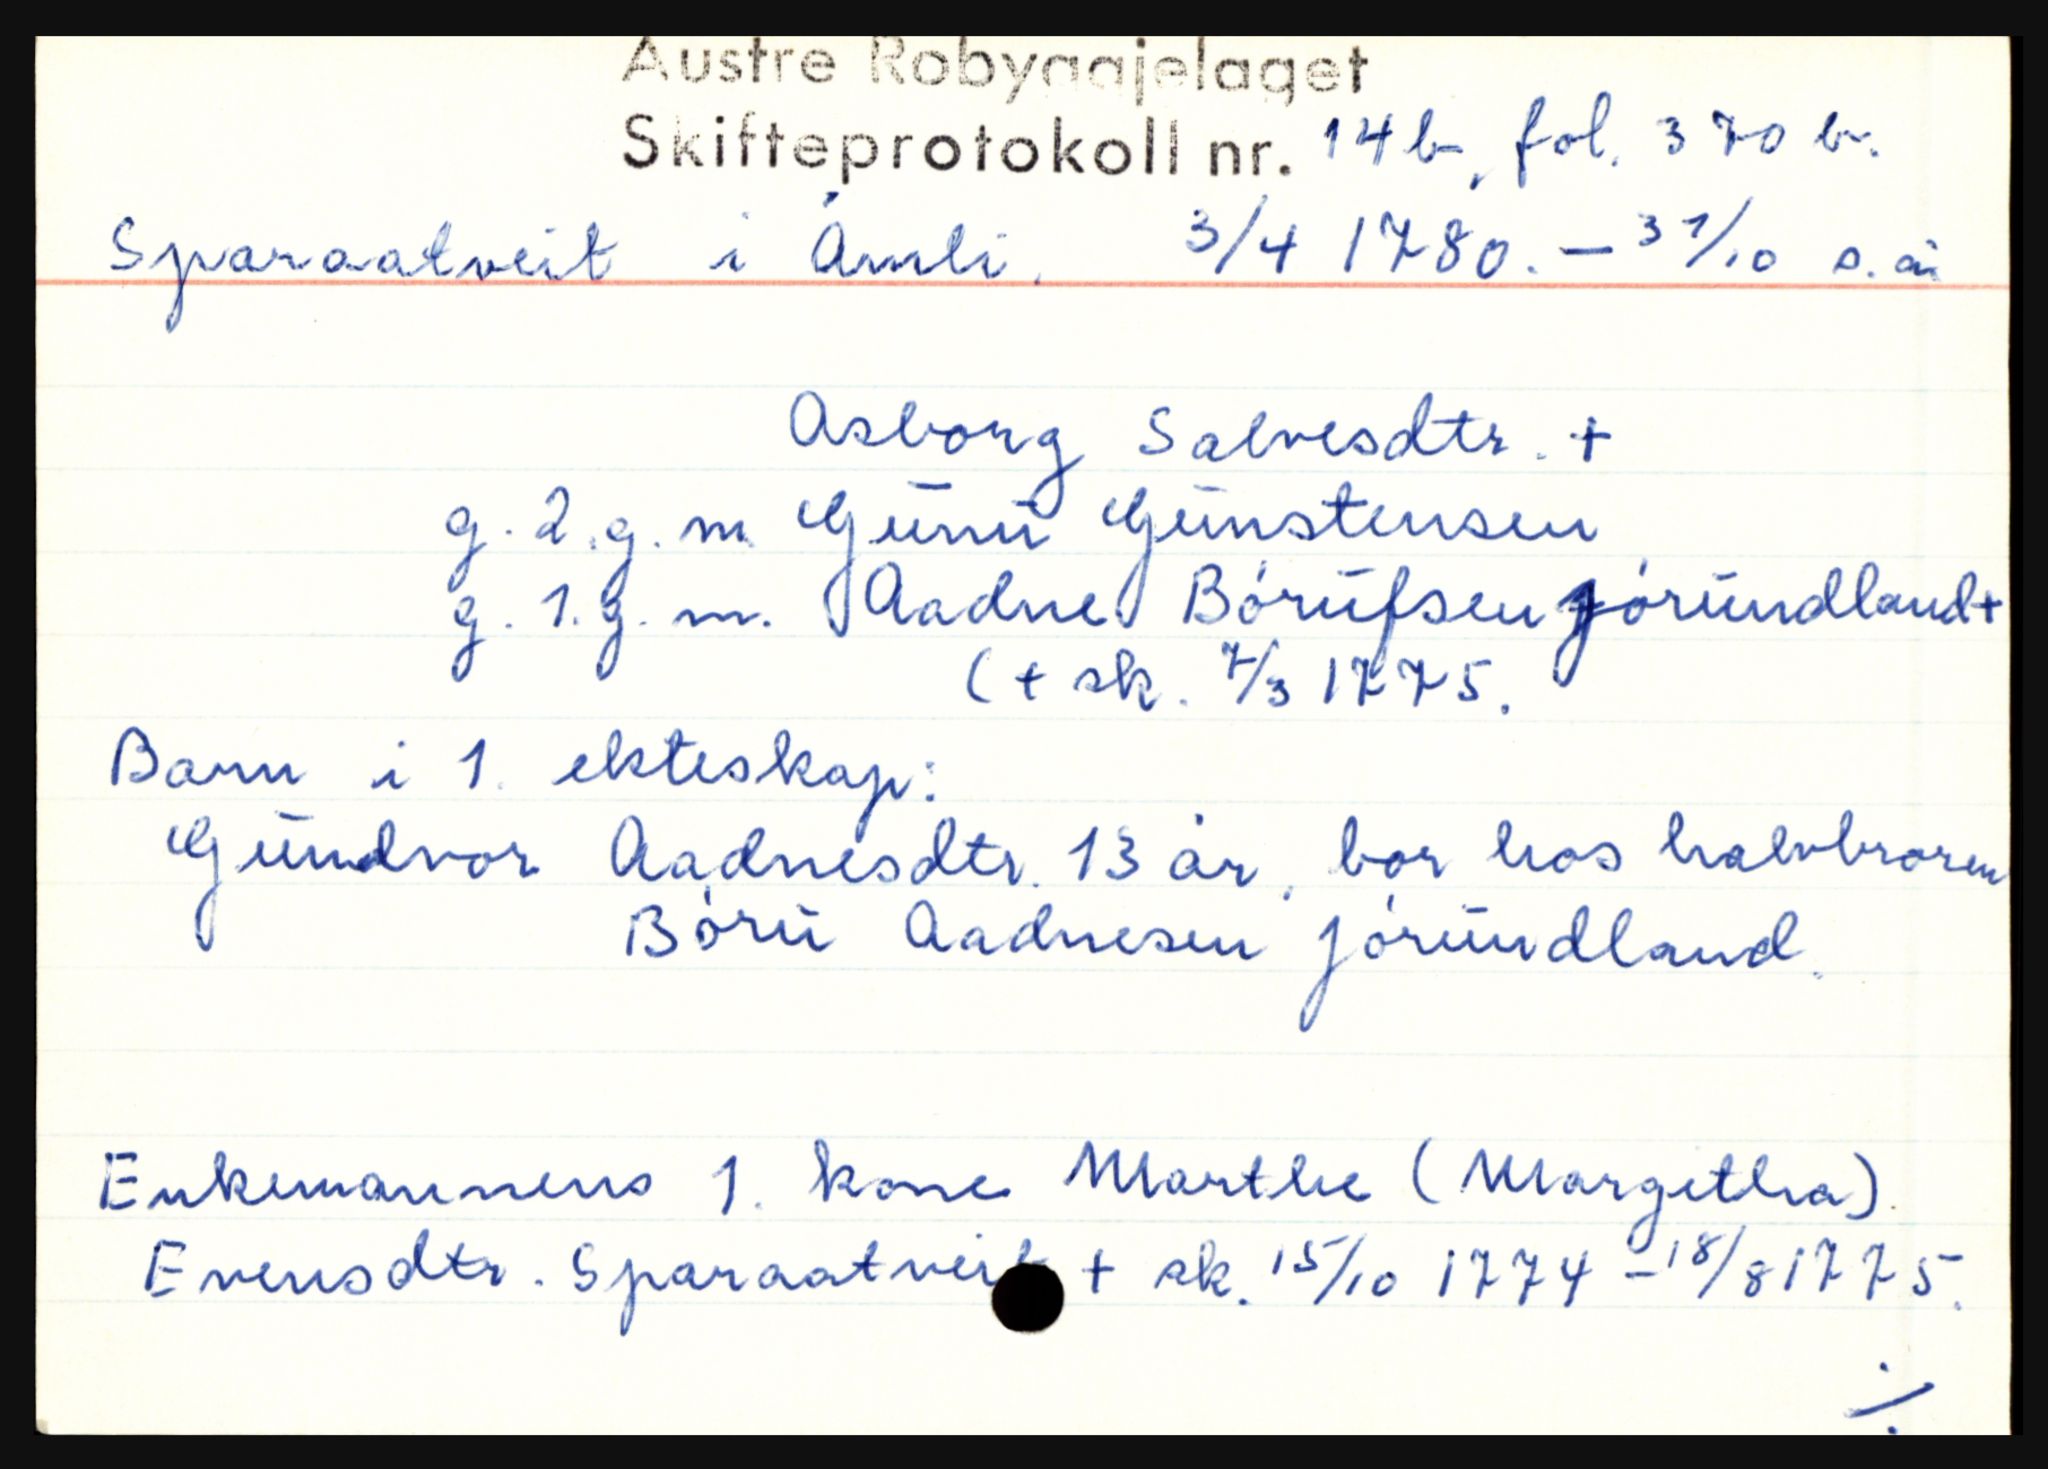 Austre Robyggjelaget
Skifteprotokoll nr. 14b, fol. 370 b.
Sparaatveit i Åmli. 3/4 1780. – 31/10 s. år
Asborg Salvesdtr. +
g. 2. g. m. Gunu Gunstensen
g. 1. g. m. Aadne Bórufsen Jórundland +
(+ sk. 7/3 1775.
Barn i 1. ekteskap:
Gundvor Aadnesdtr. 13 år, bor hos halvbroren
Bóru Aadnesen Jórundland.
Enkemannens 1. kone Marthe (Margetha)
Evensdtr. Sparaatveit + sk. 15/10 1774 – 18/8 1775.
./.